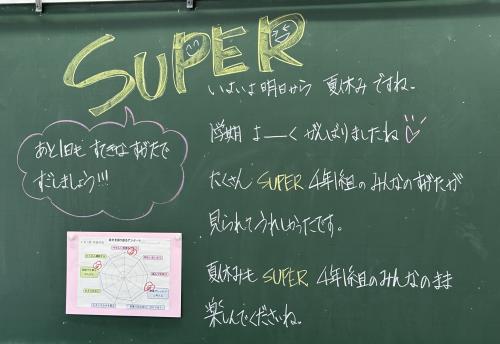 SUPER
いよいよ明日から 夏休みですね。
1学期 よーく がんばりましたね
たくさん SUPER 4年1組のみんなのすがたが
見られてうれしかったです。
夏休みも SUPER 4年1組のみんなのまま
楽しんでくださいね。
あと1日も すてきな すがたで
すごしましょう!!!